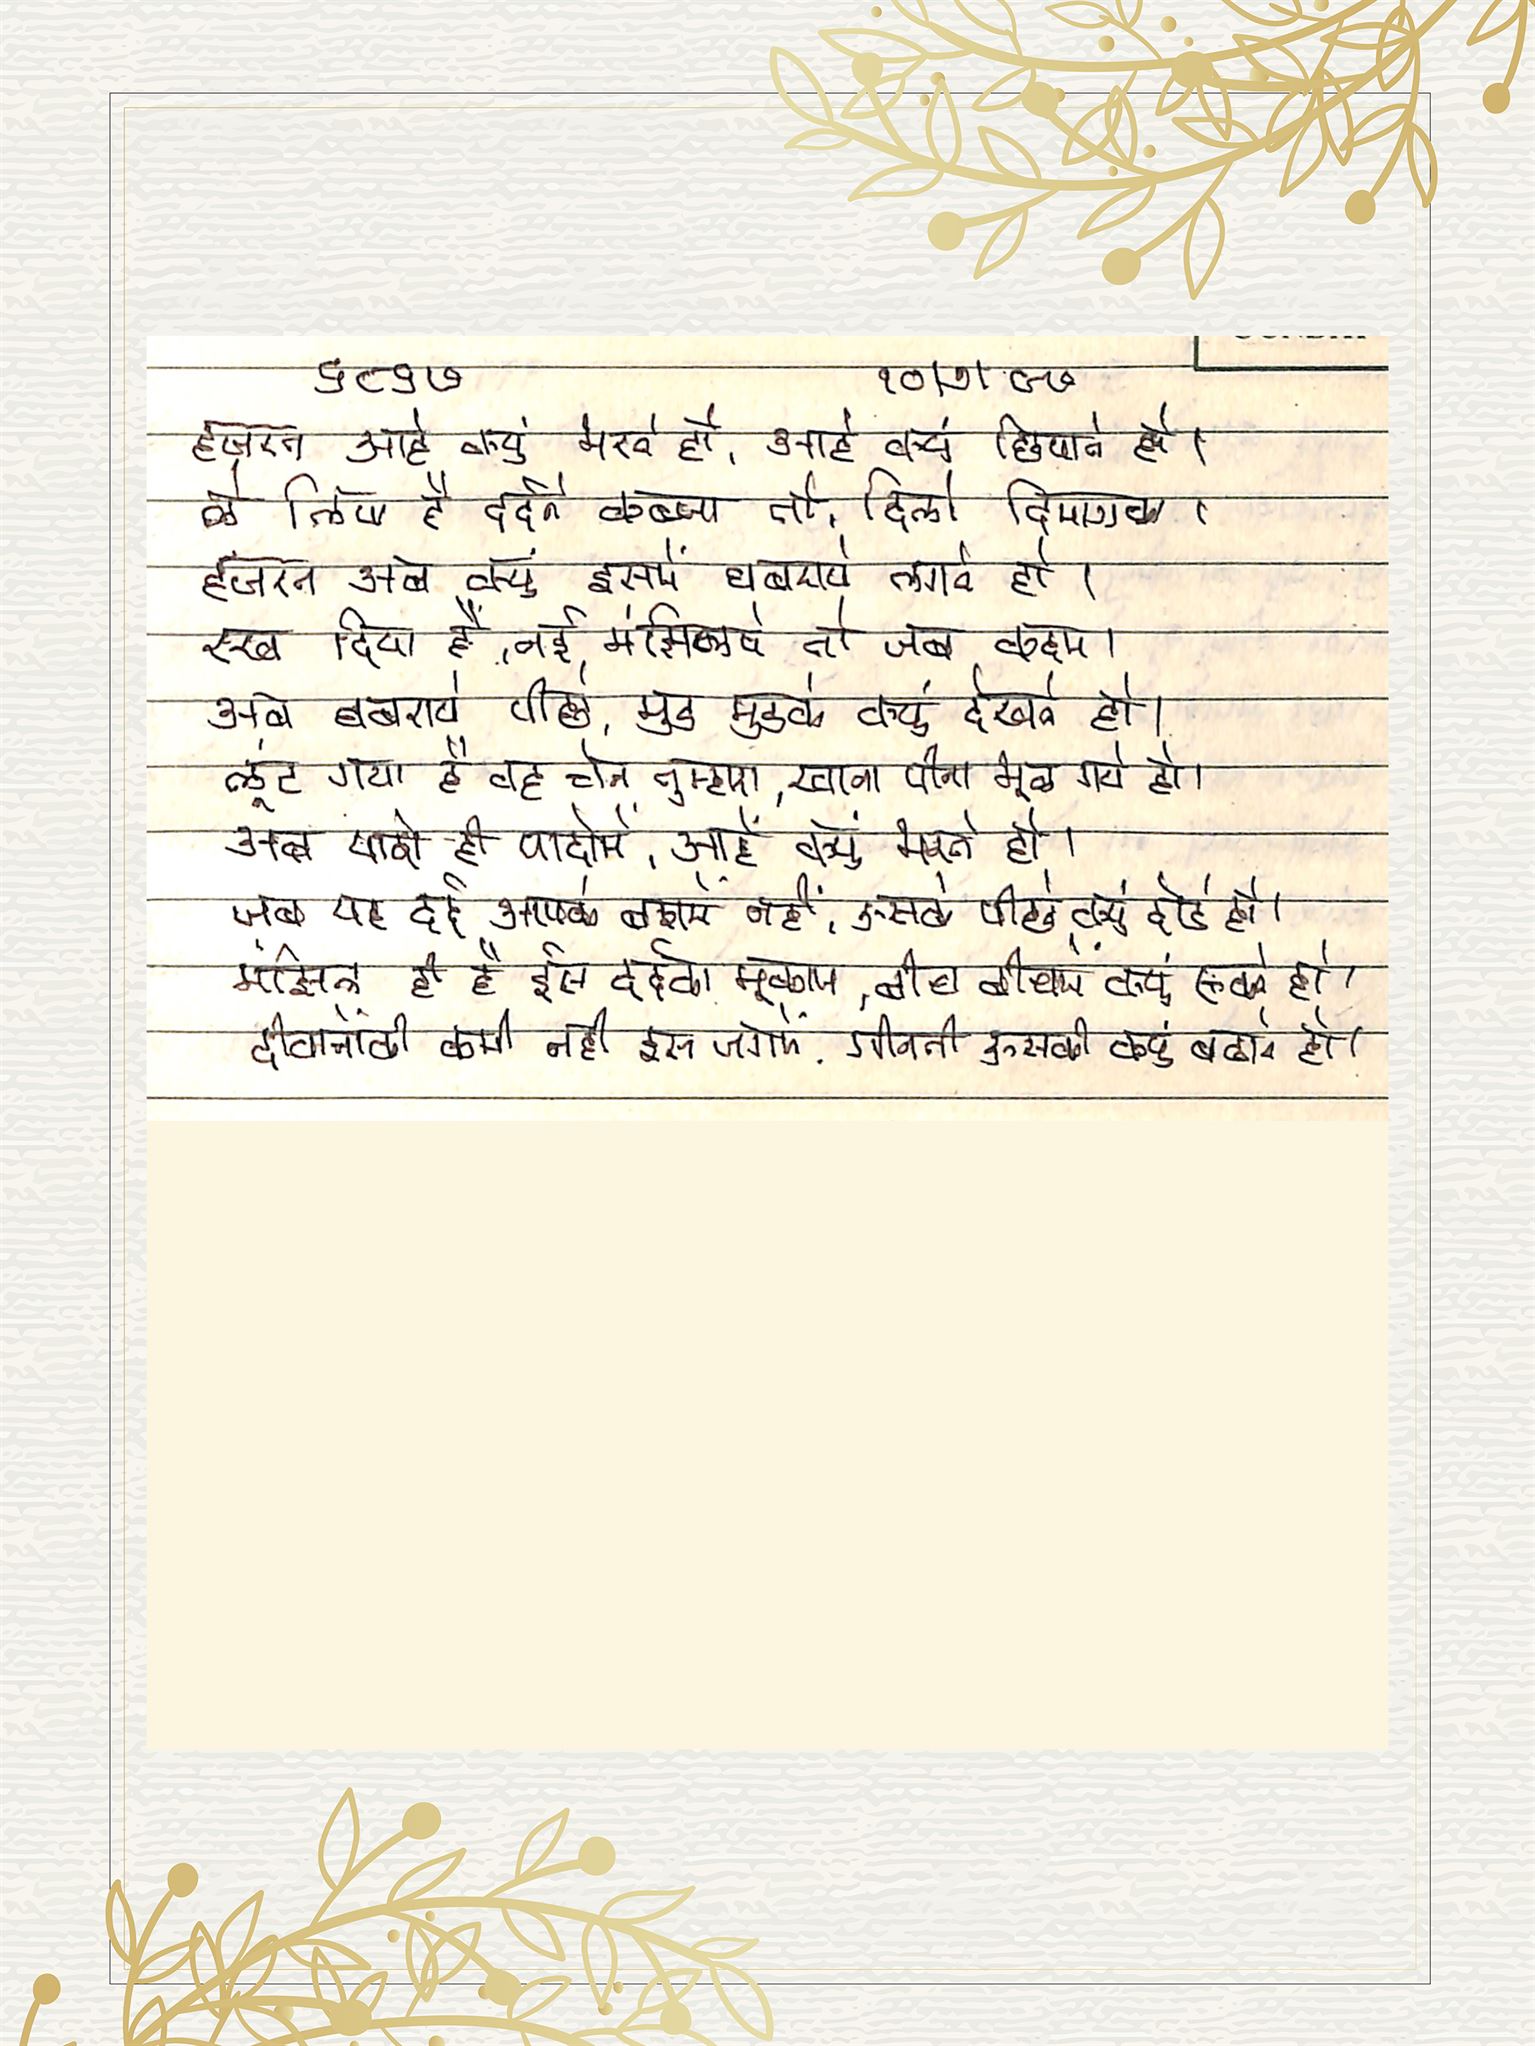 ५८५७ १०|७|८७
हजरत आहें क्युं भरते हो, आहे क्युं छिपाते हो।
ले लिया है दर्दने कब्जा तो, दिलो दिमागका।
हजरत अब क्युं इसमें घबराये लगते हो।
रख दिया है, नई मंझिलपे तो जब कदम।
अब घबराये पीछे, मुड मुडके क्युं देखते हो।
लूंट गया है वह चेन तुम्हारा, खाना पीना भूल गये हो।
अब यादो ही यादोमें, आहें क्युं भरते हो।
जब यह दर्द आपके बसमें नहीं, उसके पीछे क्युं दोडे हो।
मंझिल ही है ईस दर्दका मूकाम, बीच बीचमें क्युं रूकते हो।
दीवानोंकी कमी नही इस जगमें, गीनती उसकी क्युं बढाते हो।